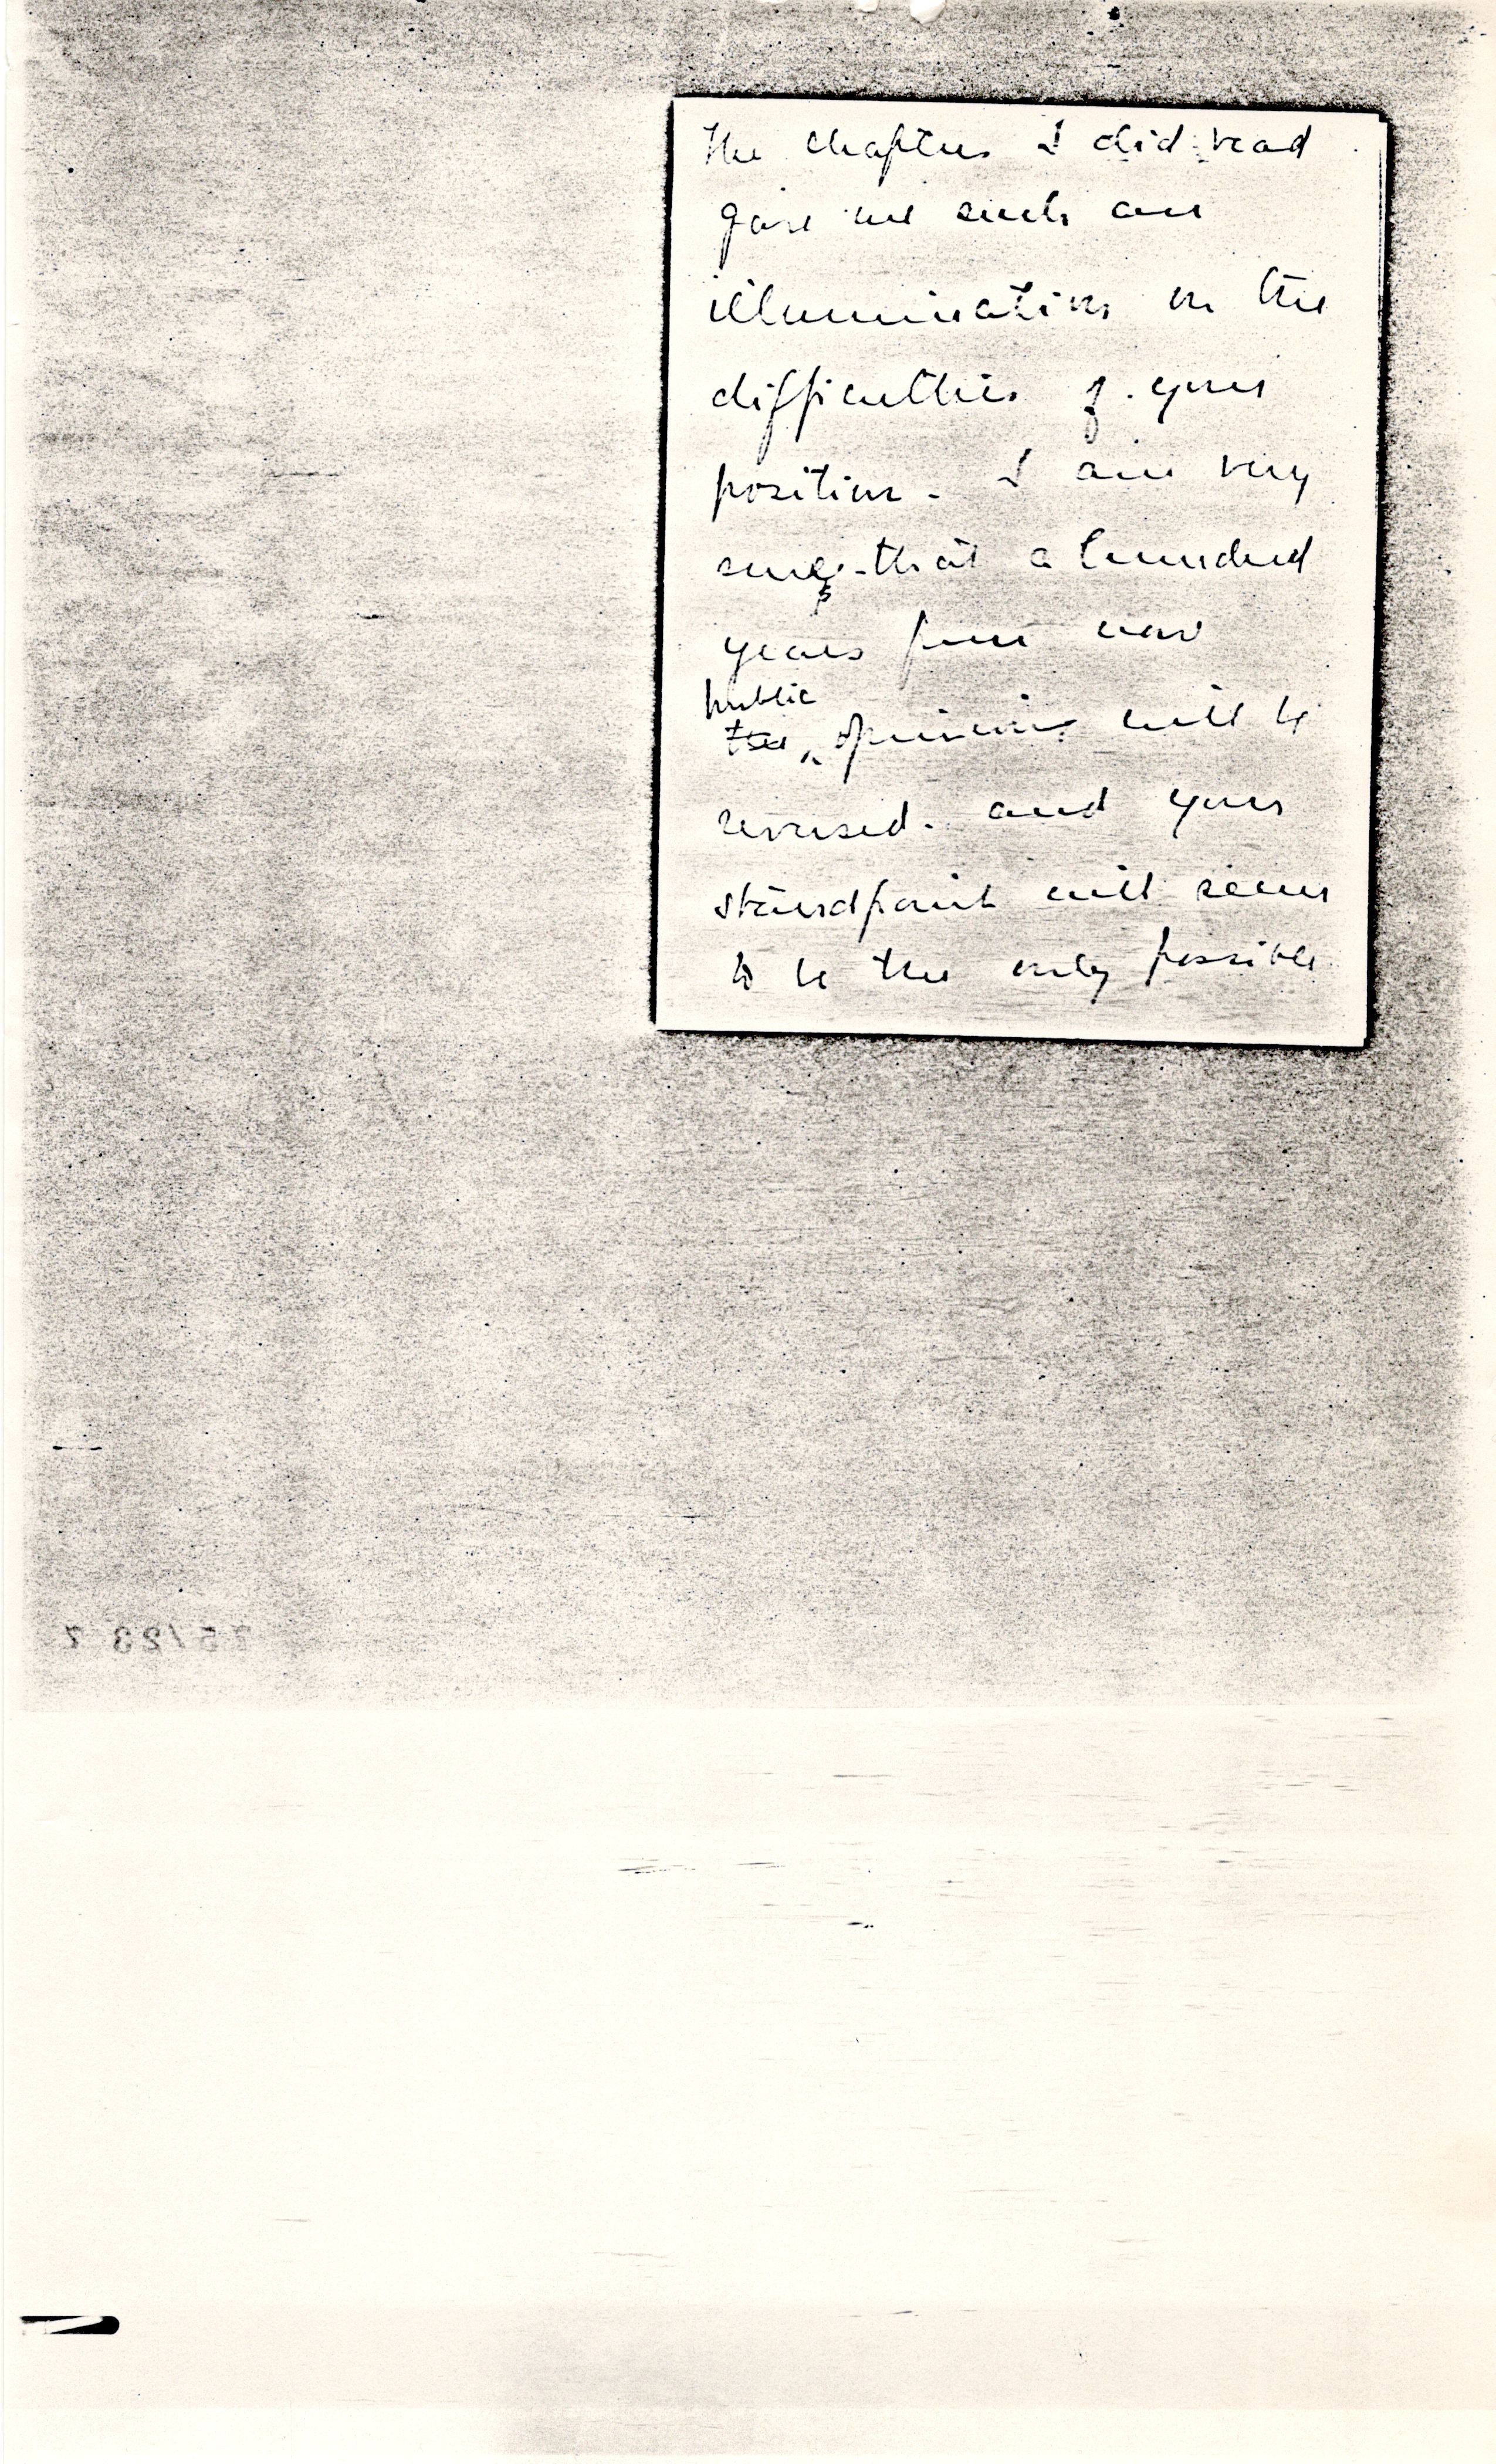 The chapters I did read
gave me such an
illumination on the
difficulties of your
position. I am very
sure that a hundred
years from now
public
the opinion will be
reversed. and your
standpoint will seem
to be the only possible